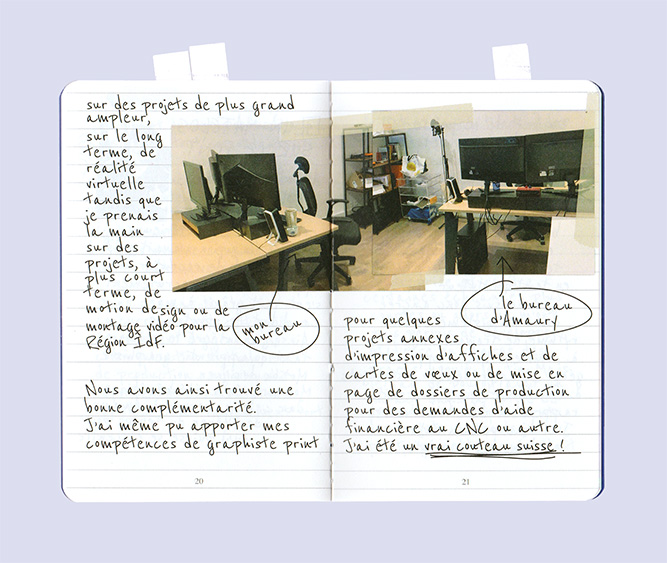 sur des projets de plus grand
ampleur,
sur le long
terme, de
réalité
virtuelle
tandis que
je prenais
la main
sur des
projets, à
plus court
terme, de
motion design ou de
montage vidéo pour la
Région IdF.
mon
bureau
Nous avons ainsi trouvé une
bonne complémentarité.
J'ai même pu apporter mes
compétences de graphiste print
20
le bureau
d'Amaury
pour quelques
projets annexes
d'impression d'affiches et de
cartes de vœux ou de mise en
page de dossiers de production
pour des demandes d'aide
financière au CNC ou autre.
J'ai été un vrai couteau suisse !
21